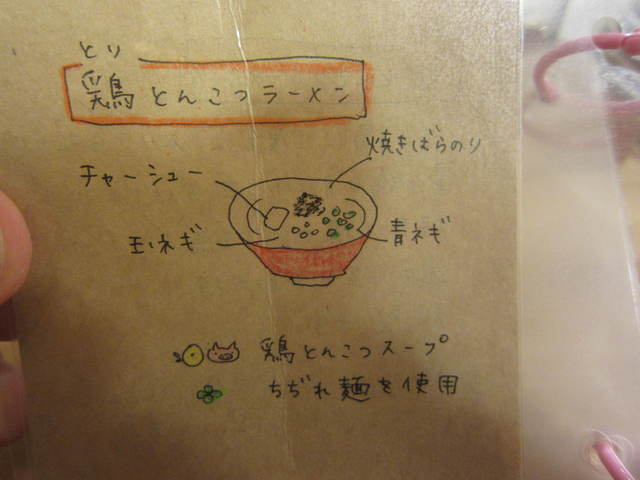 とり
鶏とんこつラーメン
焼きばらのり
チャーシュー
玉ネギ
青ネギ
鶏とんこつスープ
ちぢれ麺を使用